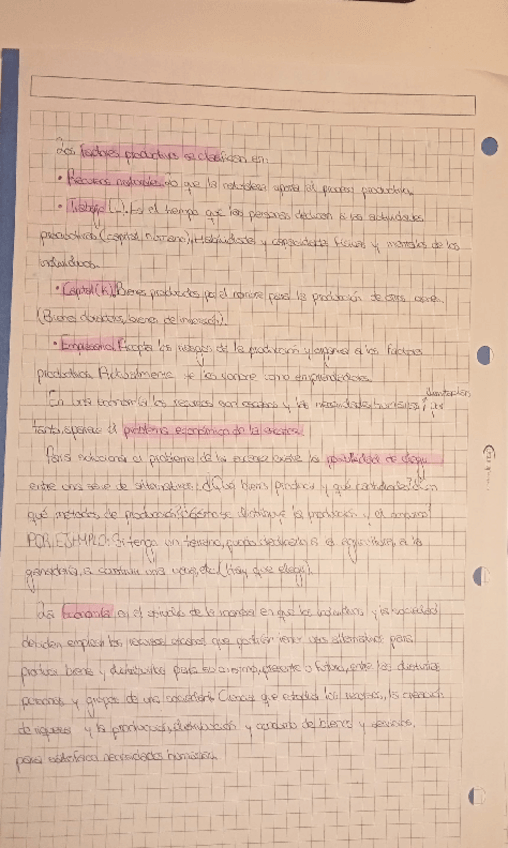 Los factores productivos se clasifican en:
• Recursos naturales: lo que la naturaleza aporta al proceso productivo.
• Trabajo (L): Es el tiempo que las personas dedican a las actividades
productivas (capital humano). Habilidades y capacidades físicas y mentales de los
individuos.
• Capital (K): Bienes producidos por el hombre para la producción de otros bienes.
(Bienes duraderos, bienes de inversión).
• Empresarial: Acepta los riesgos de la producción y organiza a los factores
productivos. Actualmente se les conoce como emprendedores.
En una economía los recursos son escasos y las necesidades humanas ilimitadas, por
tanto, aparece el problema económico de la escasez.
Para solucionar el problema de la escasez existe la posibilidad de elegir
entre una serie de alternativas: ¿Qué bienes producir y qué cantidades? ¿Con
qué métodos de producción? ¿Cómo se distribuye la producción y el consumo?
POR EJEMPLO: Si tengo un terreno, puedo dedicarlo a la agricultura, a la
ganadería, a construir una casa, etc (Hay que elegir).
La Economía es el estudio de la manera en que los individuos y la sociedad
deciden emplear los recursos escasos que podrían tener usos alternativos para
producir bienes y distribuirlos para su consumo, presente o futuro, entre las distintas
personas y grupos de una sociedad. Ciencia que estudia los recursos, la creación
de riqueza y la producción, distribución y consumo de bienes y servicios,
para satisfacer necesidades humanas.